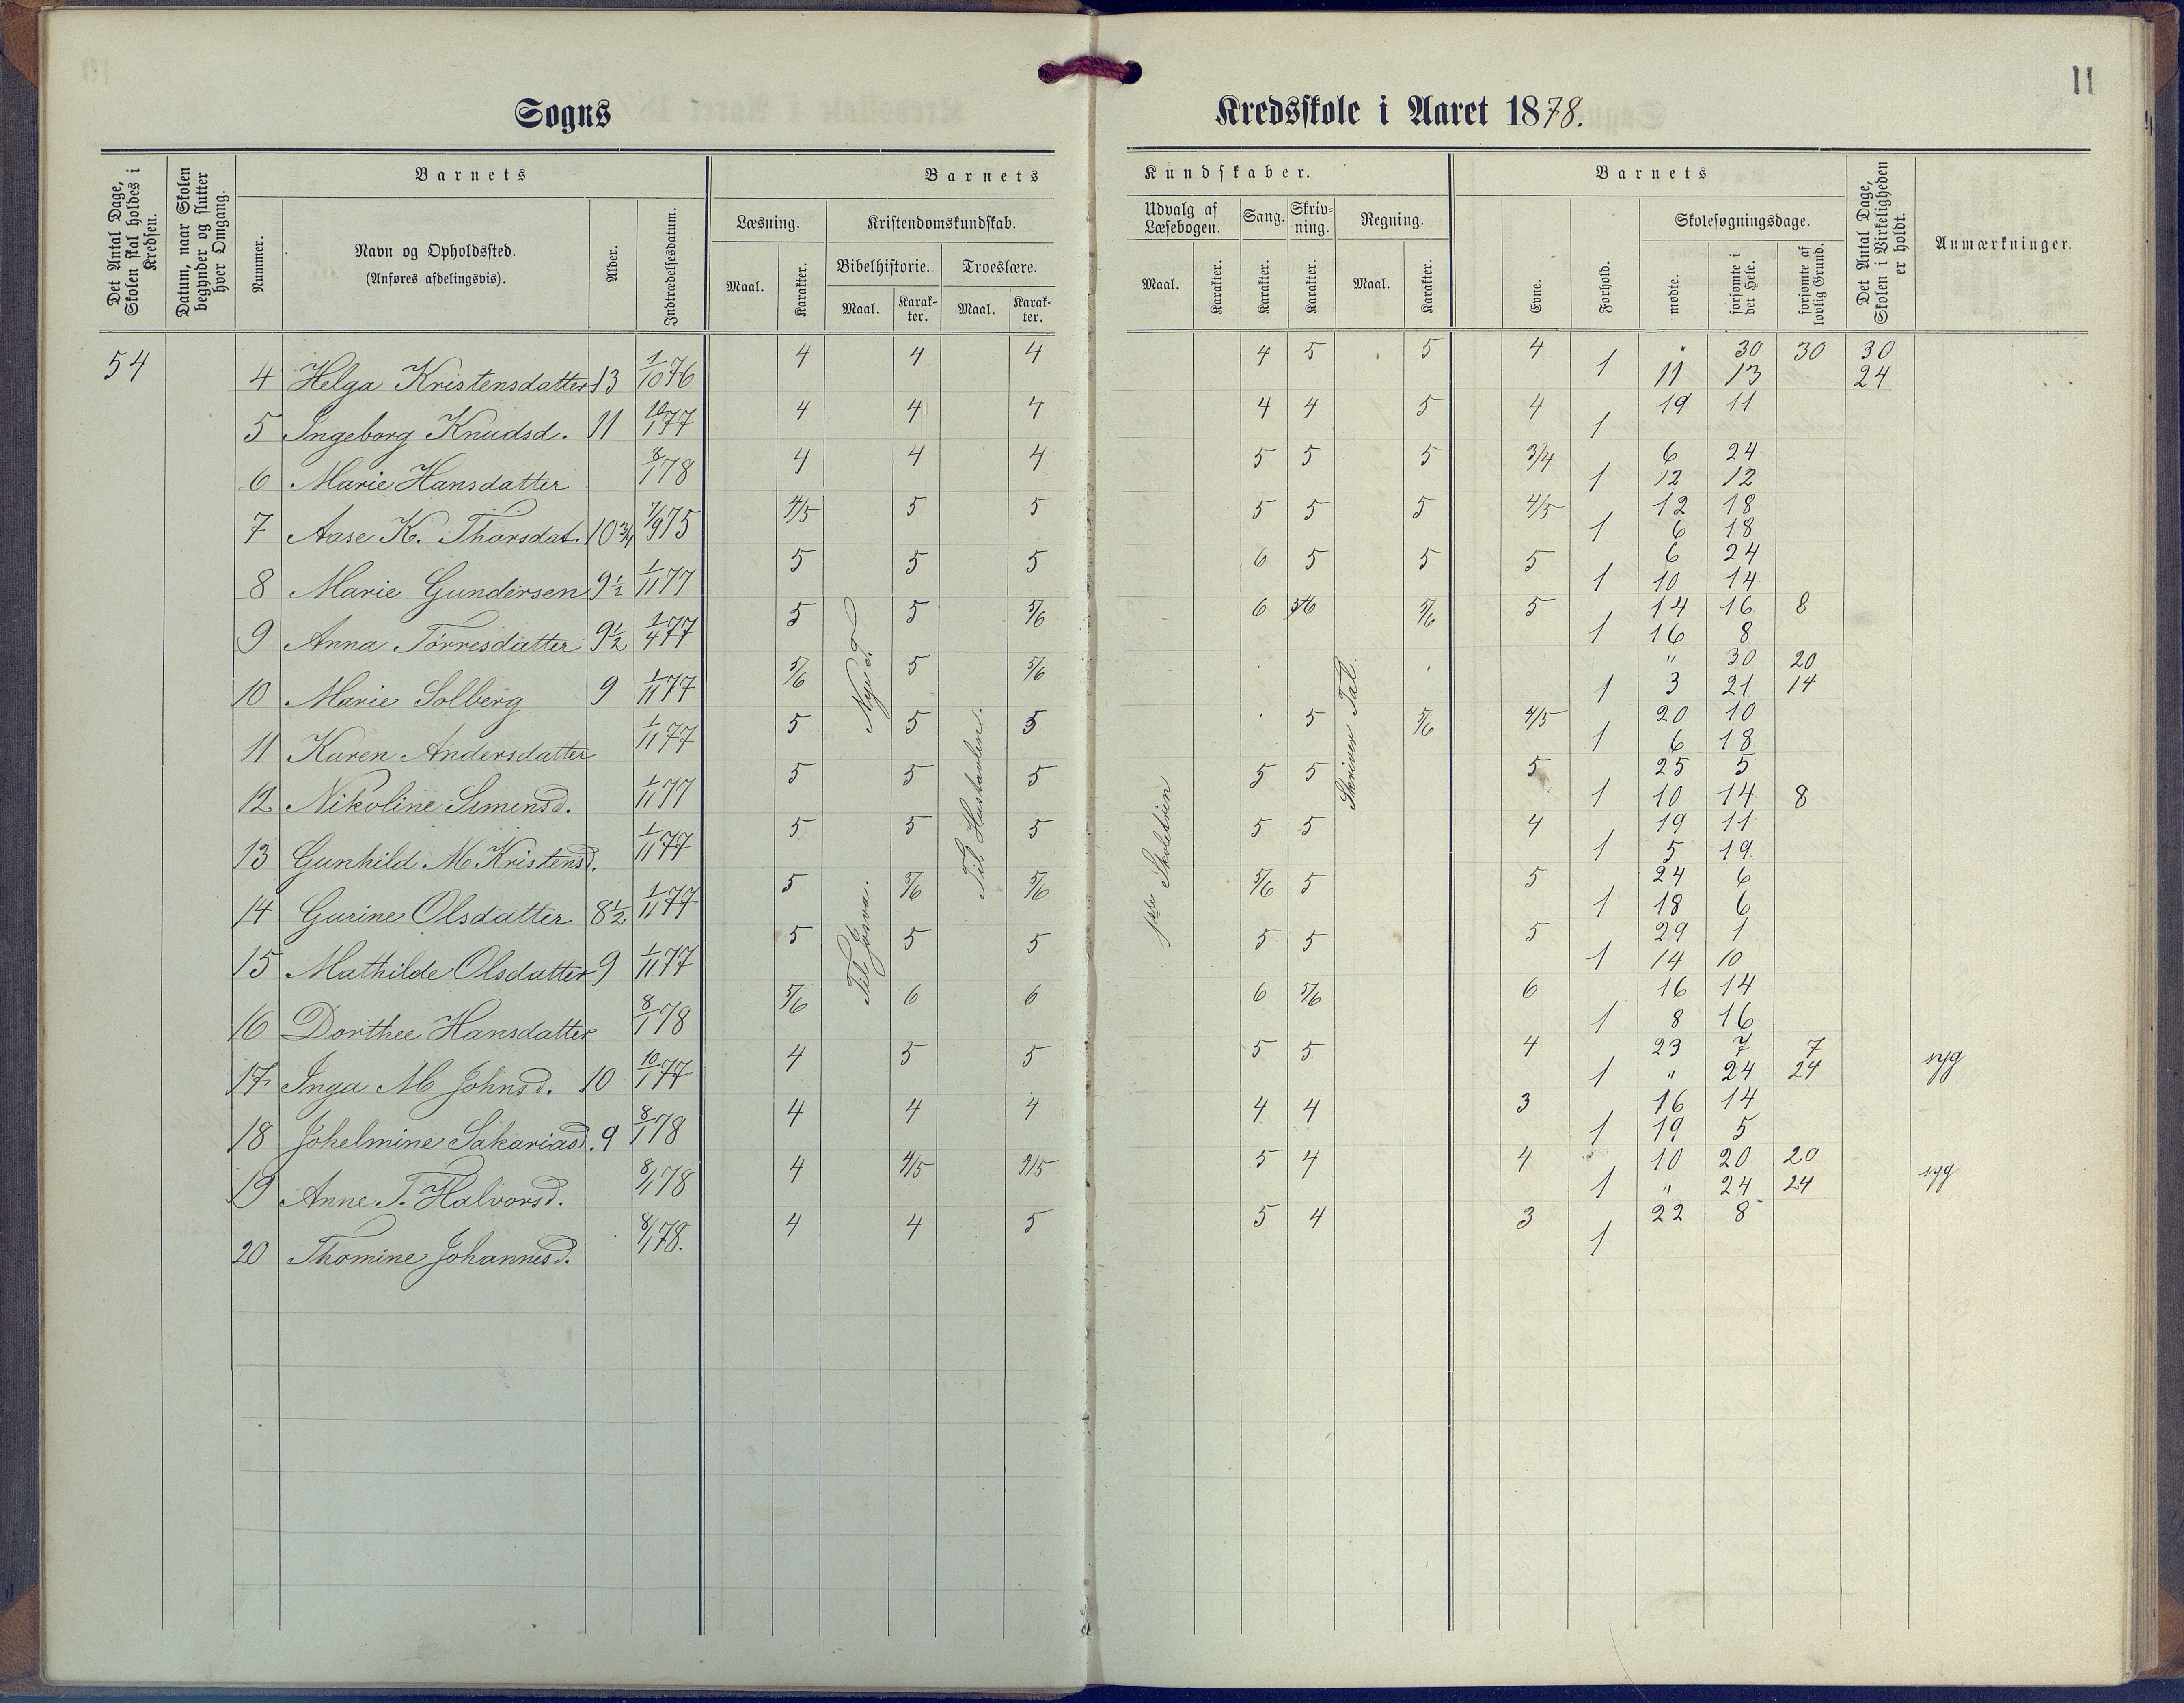 11
Sogns Kredsskole i Aaret 1878.
Det Antal Dage, Skolen skal holdes i Kredsen.
Datum, naar Skolen begynder og slutter hver Omgang.
Barnets
Nummer.
Navn og Opholdssted.
(Anføres afdelingsvis).
Alder.
Indtrædelsesdatum.
Barnets Kundskaber.
Læsning.
Maal.
Karakter.
Kristendomskundskab.
Bibelhistorie.
Maal.
Karakter.
Troeslære.
Maal.
Karakter.
Udvalg af Læsebogen.
Maal.
Karakter.
Sang.
Karakter.
Skrivning.
Karakter.
Regning.
Maal.
Karakter.
Barnets
Evne.
Forhold.
Skolesøgningsdage.
mødte.
forsømte i det Hele.
forsømte af lovlig Grund.
Det Antal Dage, Skolen i Virkeligheden er holdt.
Anmærkninger.
54 4 Helga Kristensdatter 13 1/10 76 4 4 4 4 5 5 4 1 " 30 30 30
11 13 24
5 Ingeborg Knudsd. 11 10/1 77 4 4 4 4 4 5 4 1 19 11
6 Marie Hansdatter 8/1 78 4 4 4 5 5 5 3/4 1 6 24
12 12
7 Aase K. Thorsdat. 10 3/4 7/9 75 4/5 5 5 5 5 5 4/5 1 12 18
6 18
8 Marie Gundersen 9 1/2 1/11 77 5 5 5 6 5 5 5 1 6 24
10 14
9 Anna Törresdatter 9 1/2 1/4 77 5 5 5/6 6 5/6 5/6 5 1 14 16 8
16 8
10 Marie Solberg 9 1/11 77 5/6 5 5/6 1 " 30 20
3 21 14
11 Karen Andersdatter 1/11 77 5 5 5 5 5/6 4/5 1 20 10
6 18
12 Nikoline Simensd. 1/11 77 5 5 5 5 5 5 1 25 5
10 14 8
13 Gunhild M Kristensd. 1/11 77 5 5 5 5 5 4 1 19 11
5 19
14 Gurine Olsdatter 8 1/2 1/11 77 5 5/6 5/6 5/6 5 5 1 24 6
18 6
15 Mathilde Olsdatter 9 1/11 77 5 5 5 5 5 5 1 29 1
14 10
16 Dorthee Hansdatter 8/1 78 5/6 6 6 6 5/6 6 1 16 14
8 16
17 Inga M Johnsd. 10 10/1 77 4 5 5 5 5 4 1 23 7 7
" 24 24 syg
18 Johelmine Sakariasd. 9 8/1 78 4 4 4 4 4 3 1 16 14
19 5
19 Anne T. Halvorsd. 8/1 78 4 4/5 4/5 5 4 4 1 10 20 20
" 24 24 syg
20 Thomine Johannesd. 8/1 78. 4 4 5 5 4 3 1 22 8
Nye T
Til Josva.
Til Hustavlen.
1ste Skoletrin
Skriver Tal.